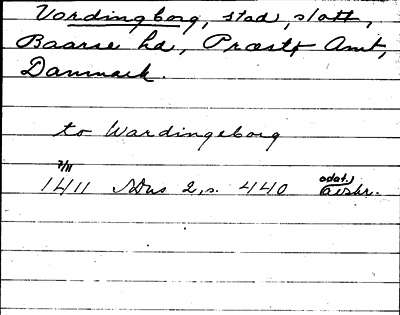 Vordingborg, stad, slott,
Baarse hd, Præstø Amt,
Danmark.
to Wardingeborg
7/11 odat.)
1411 SDns 2, s. 440 avskr.